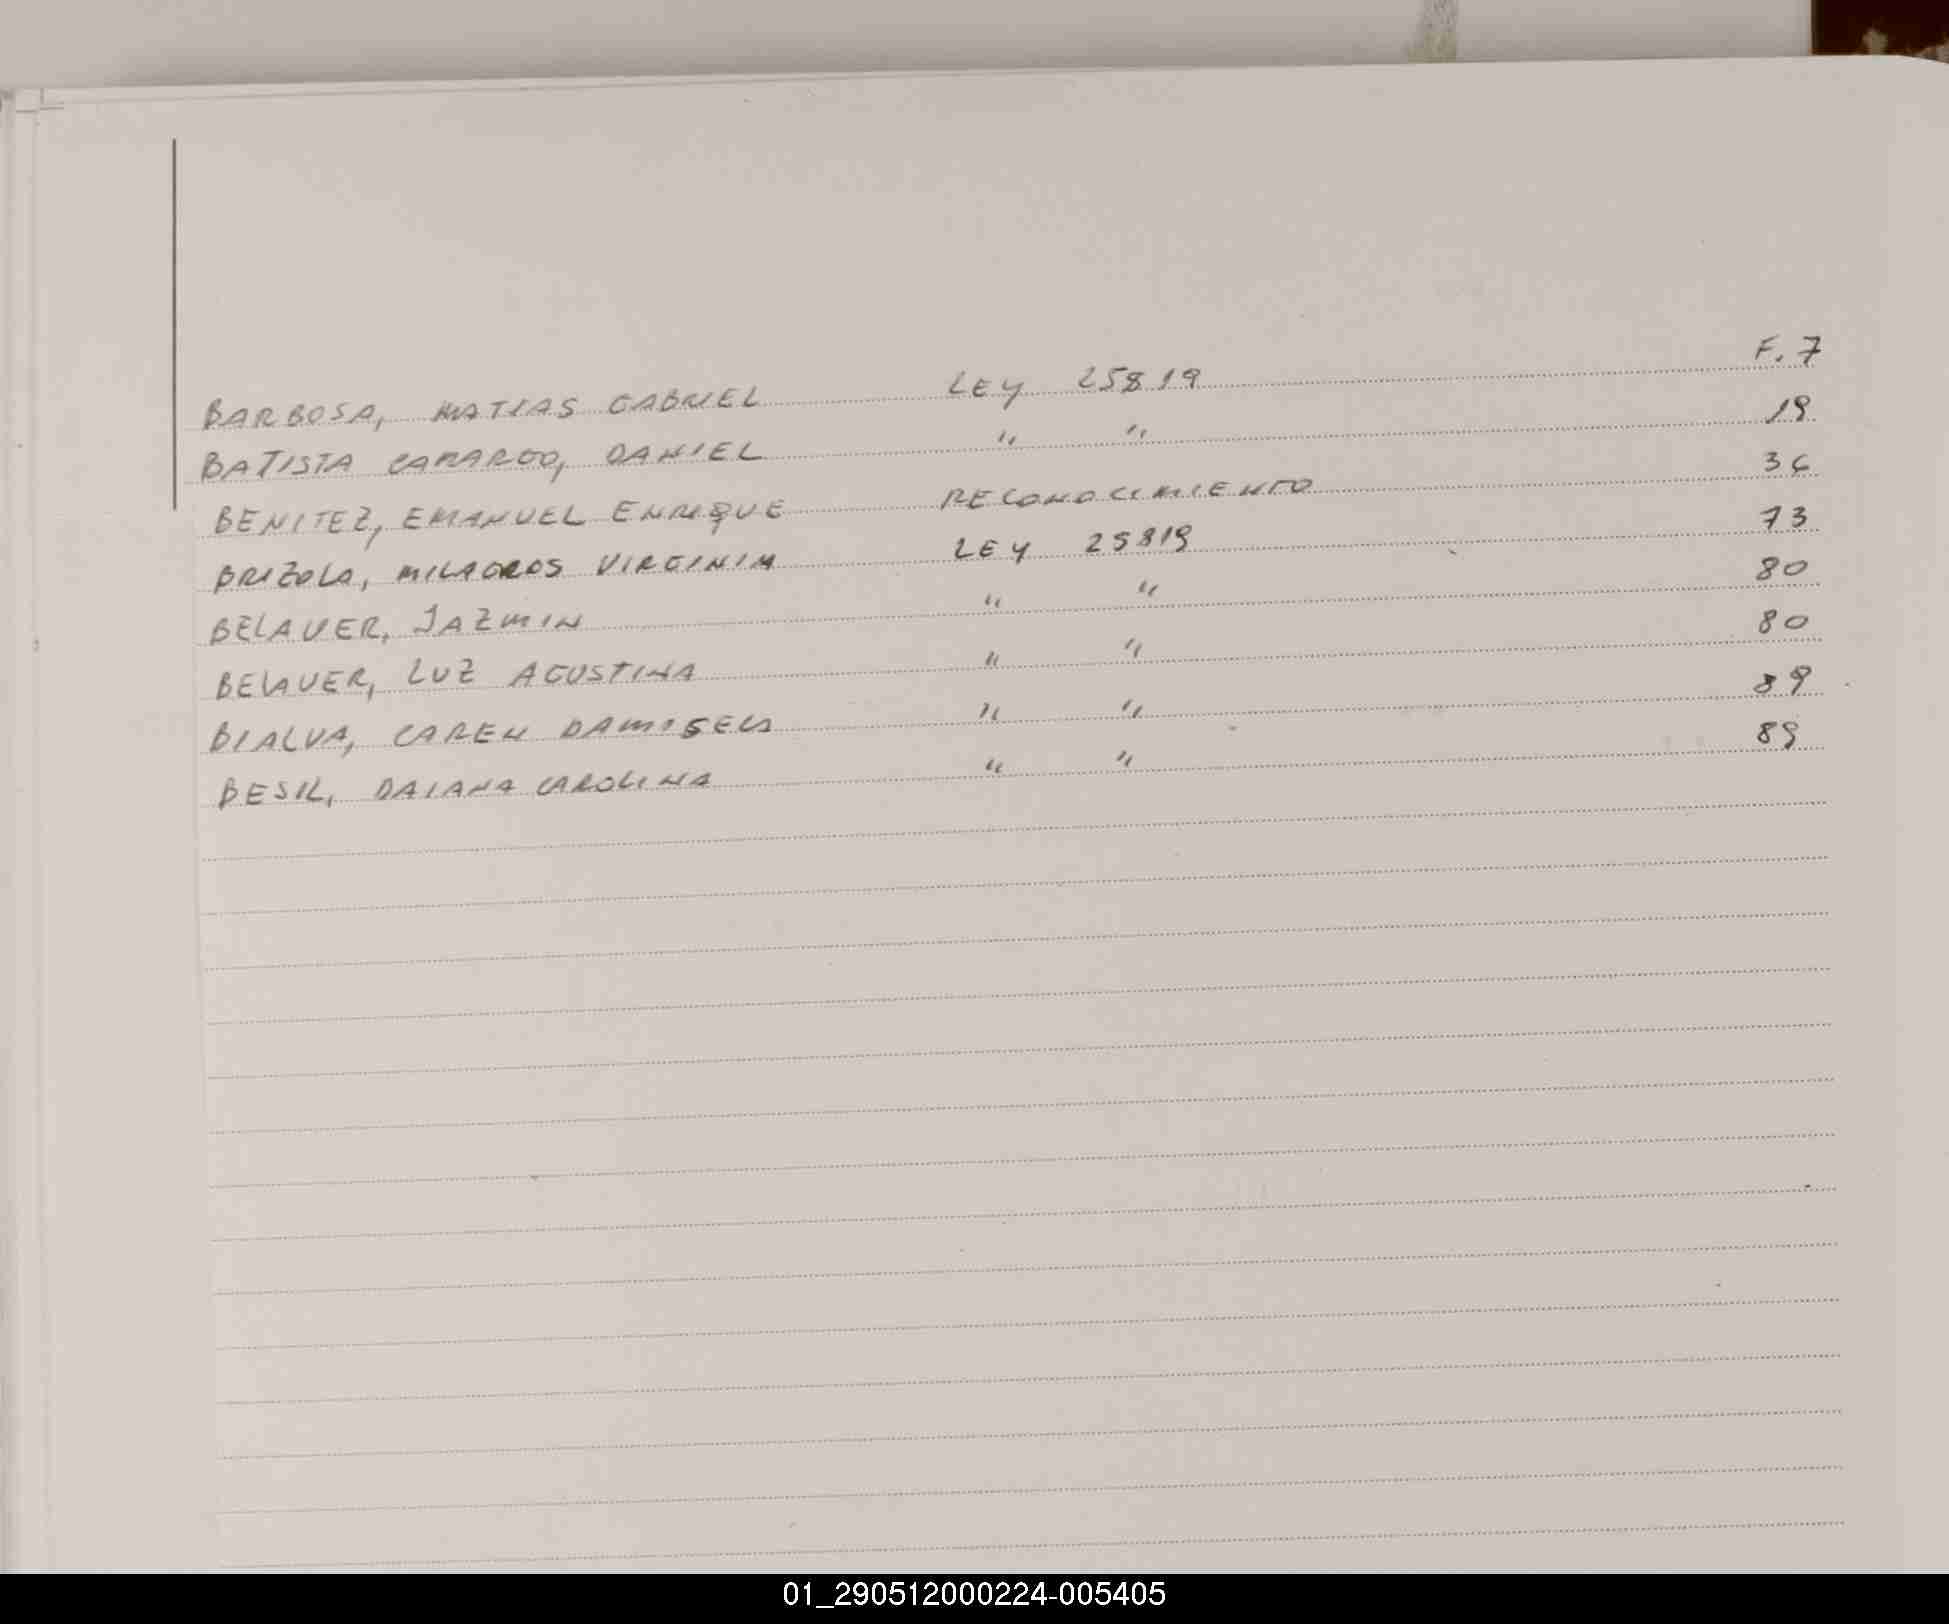 BARBOSA, MATIAS GABRIEL LEY 25819 F. 7
BATISTA CAMARGO, DANIEL " " 19
BENITEZ, EMANUEL ENRIQUE RECONOCIMIENTO 36
BRIZOLA, MILAGROS VIRGINIA LEY 25819 73
BELAVER, JAZMIN " " 80
BELAVER, LUZ AGUSTINA " " 80
BIALVA, CAREN DAMISELA " " 89
BESIL, DAIANA CAROLINA " " 89
01_290512000224-005405